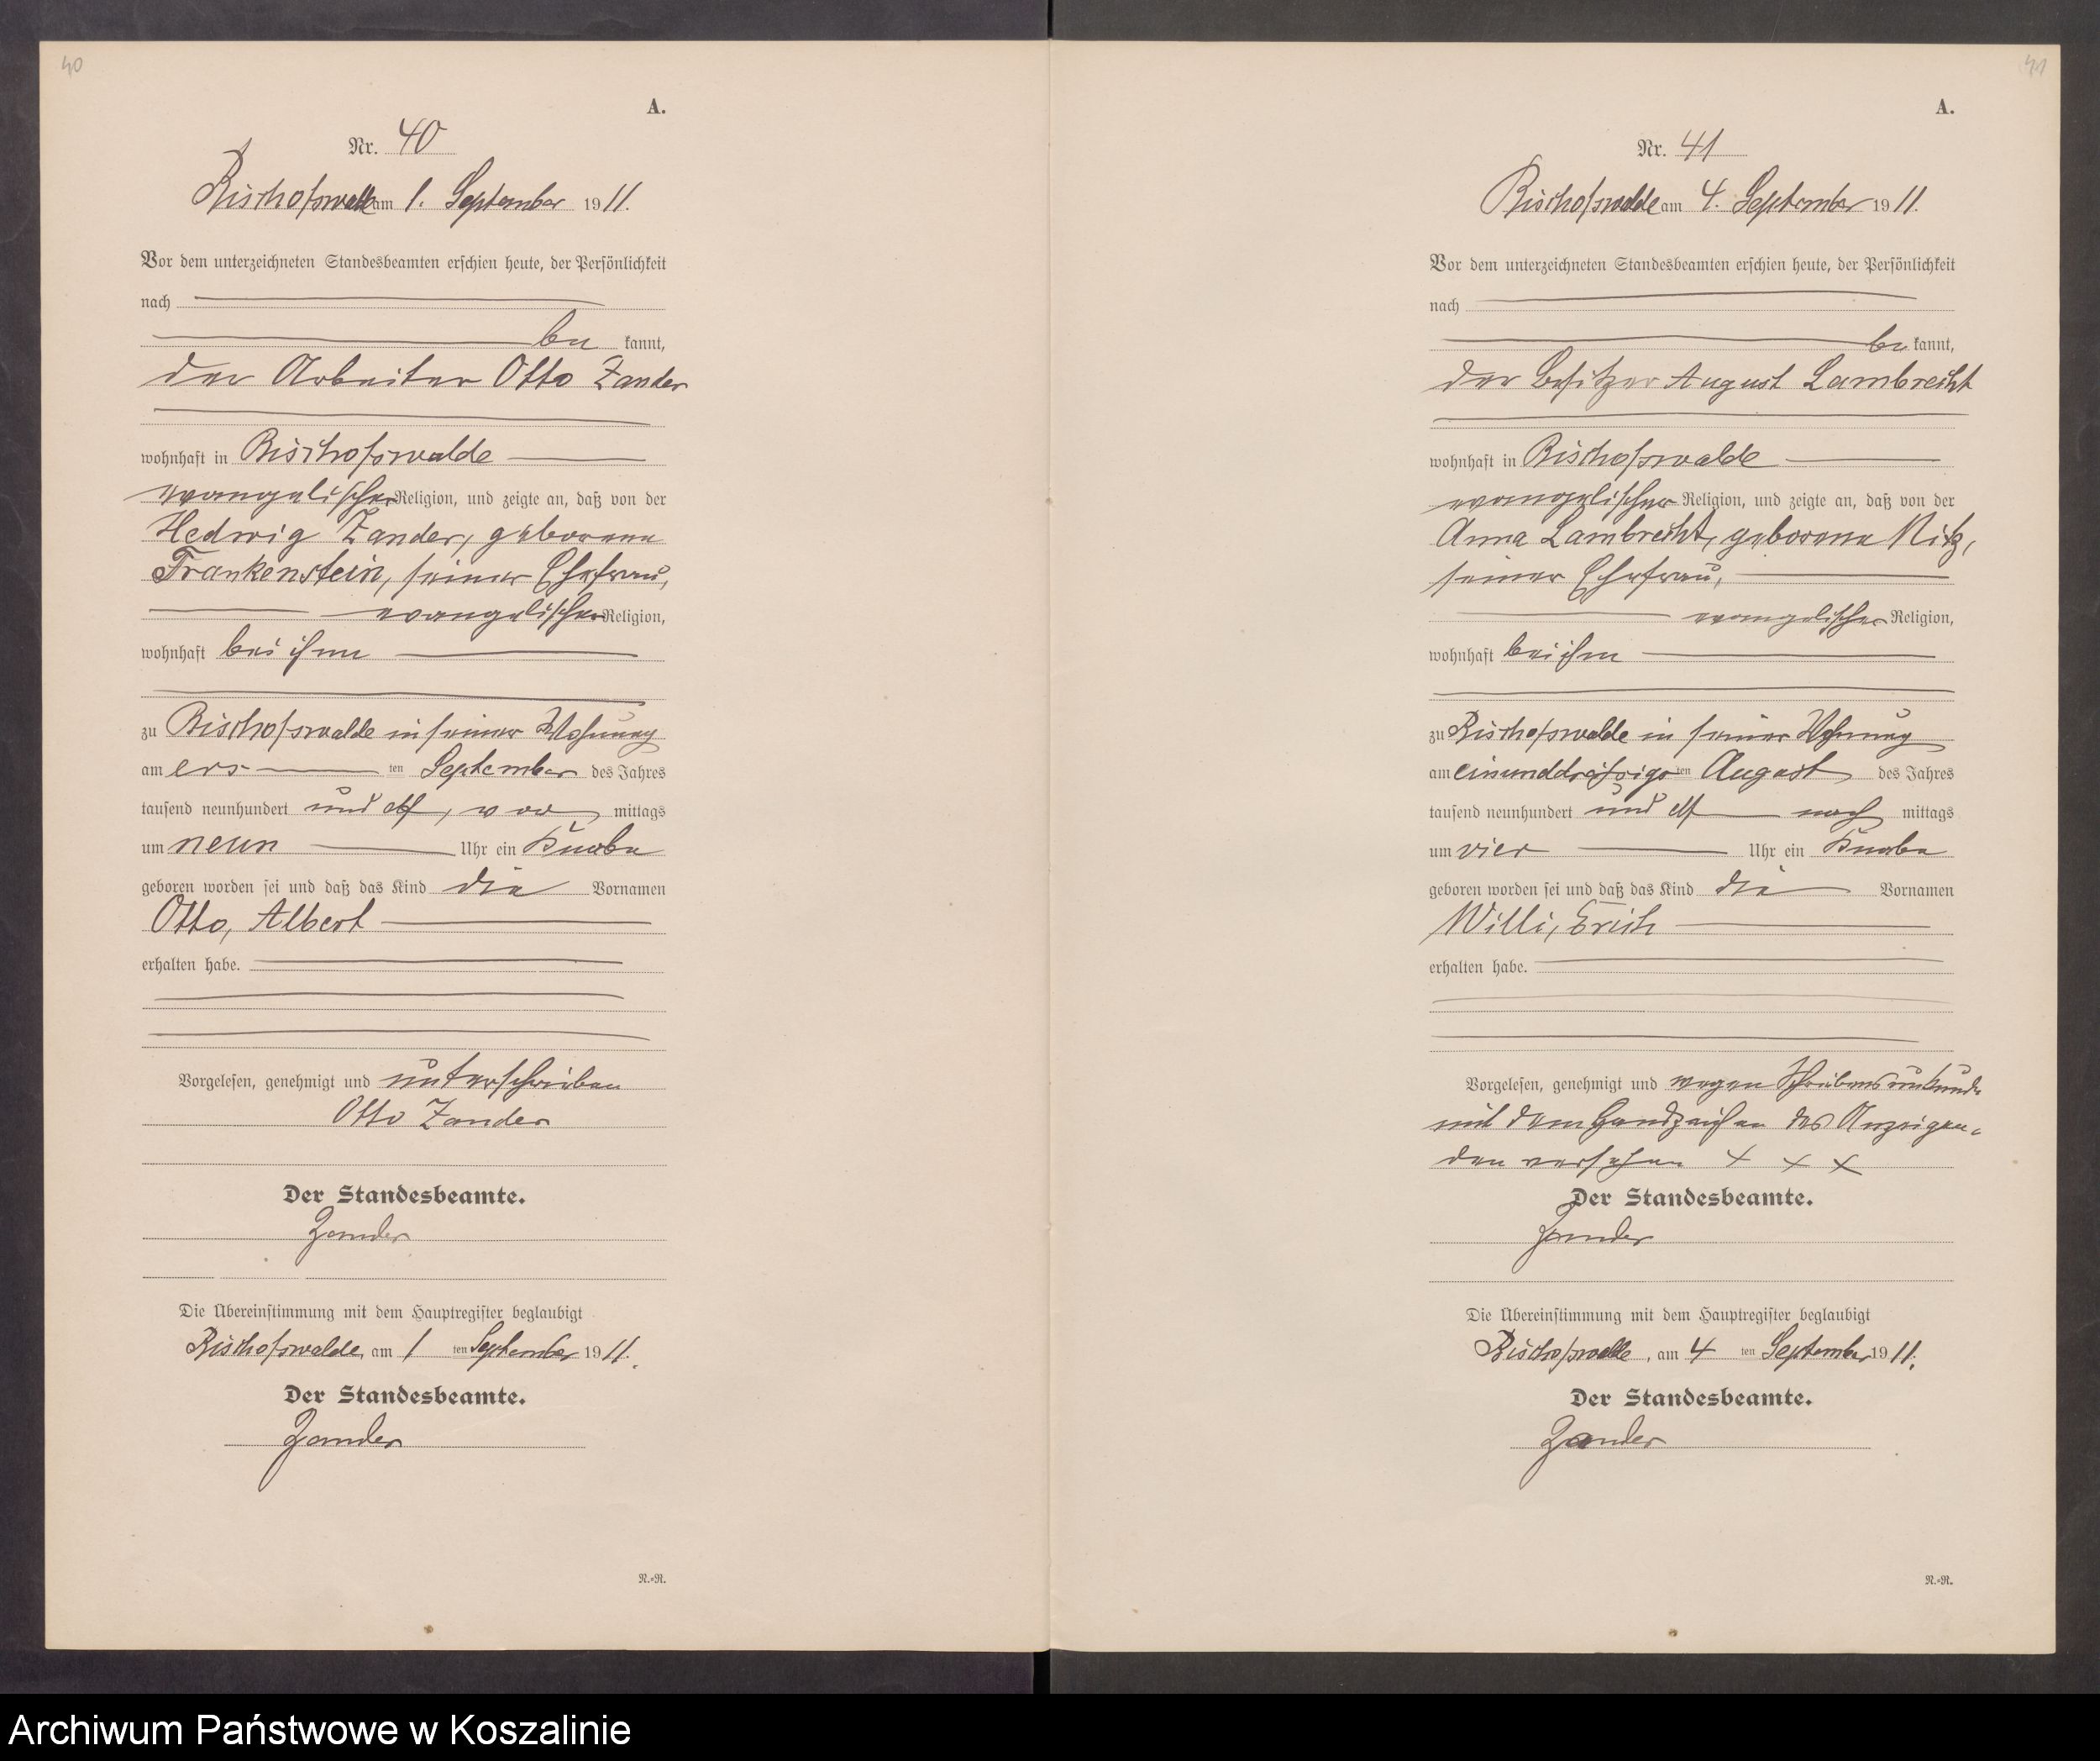 40
A.
Nr. 40
Bischofswalde am 1. September 1911.
Vor dem unterzeichneten Standesbeamten erschien heute, der Persönlichkeit
nach
be kannt,
der Arbeiter Otto Zander
wohnhaft in Bischofswalde
evangelischer Religion, und zeigte an, daß von der
Hedwig Zander, geborene
Frankenstein, seiner Ehefrau,
evangelischer Religion,
wohnhaft bei ihm
zu Bischofswalde in seiner Wohnung
am ers ten September des Jahres
tausend neunhundert und elf, vor mittags
um neun Uhr ein Knabe
geboren worden sei und daß das Kind die Vornamen
Otto, Albert
erhalten habe.
Vorgelesen, genehmigt und unterschrieben
Otto Zander
Der Standesbeamte.
Zander
Die Übereinstimmung mit dem Hauptregister beglaubigt
Bischofswalde, am 1 ten September 1911.
Der Standesbeamte.
Zander
R.=R.
41
A.
Nr. 41
Bischofswalde am 4. September 1911.
Vor dem unterzeichneten Standesbeamten erschien heute, der Persönlichkeit
nach
be kannt,
der Besitzer August Lambrecht
wohnhaft in Bischofswalde
evangelischer Religion, und zeigte an, daß von der
Anna Lambrecht, geborene Nitz,
seiner Ehefrau,
evangelischer Religion,
wohnhaft bei ihm
zu Bischofswalde in seiner Wohnung
am einunddreißigs ten August des Jahres
tausend neunhundert und elf nach mittags
um vier Uhr ein Knabe
geboren worden sei und daß das Kind die Vornamen
Willi, Erich
erhalten habe.
Vorgelesen, genehmigt und wegen Schreibensunkunde
mit dem Handzeichen des Anzeigen=
den versehen + + +
Der Standesbeamte.
Zander
Die Übereinstimmung mit dem Hauptregister beglaubigt
Bischofswalde, am 4 ten September 1911.
Der Standesbeamte.
Zander
R.=R.
Archiwum Państwowe w Koszalinie